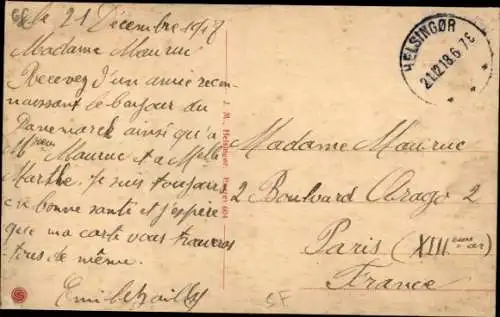 le 21 Décembre 1918
Madame Mauruc
Recevez d'un ami recon-
naissant le bonjour du
Danemark ainsi qu'a
Mauruc et a Melle
Marthe. Je suis toujours
en bonne santé et j'espère
que ma carte vous trouveras
tous de même.
HELSINGØR
21.12.18.6-7 E
Madame Mauruc
2 Boulvard Arago 2
Paris (XIII
France
SF